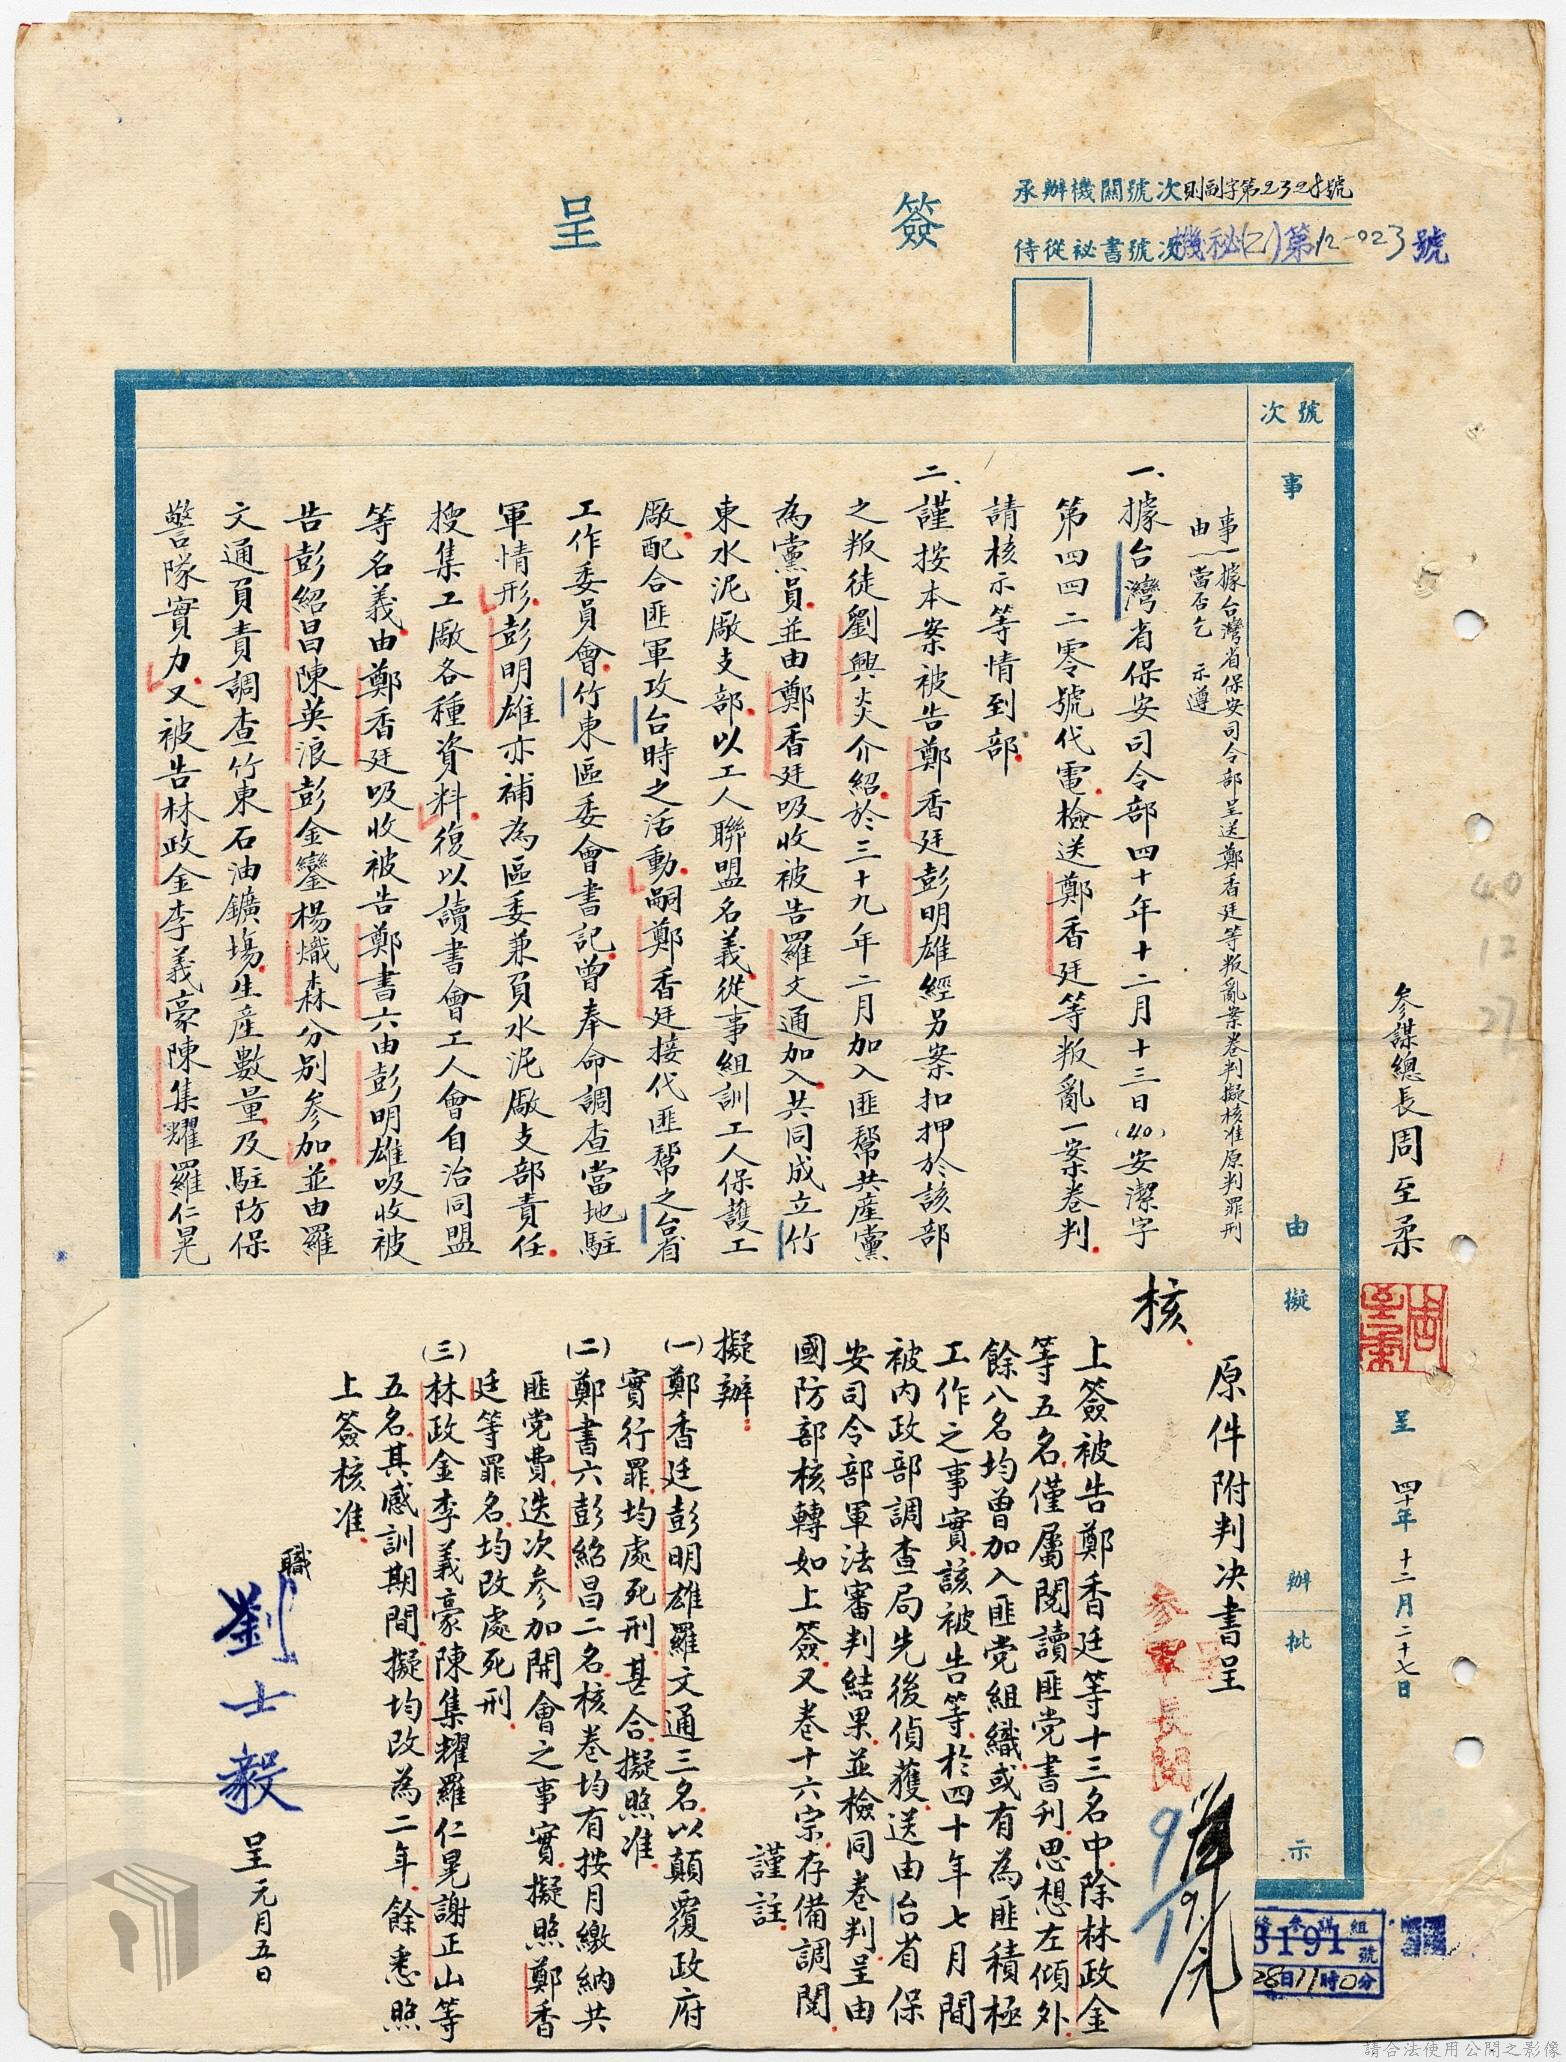 簽呈
承辦機關號次則副字第2328號
侍從祕書號次機秘(乙)第12-023號
號次
事由
擬辦
批示
參謀總長周至柔
周至柔
呈 四十年十二月二十七日
40 12 27
事由 據台灣省保安司令部呈送鄭香廷等叛亂案卷判擬核准原判罪刑
當否乞 示遵
一、據台灣省保安司令部四十年十二月十三日(40)安潔字
第四四二零號代電檢送鄭香廷等叛亂一案卷判
請核示等情到部
二、謹按本案被告鄭香廷彭明雄經另案扣押於該部
之叛徒劉興炎介紹於三十九年二月加入匪幫共產黨
為黨員並由鄭香廷吸收被告羅文通加入共同成立竹
東水泥廠支部以工人聯盟名義從事組訓工人保護工
廠配合匪軍攻台時之活動嗣鄭香廷接代匪幫之台省
工作委員會竹東區委會書記曾奉命調查當地駐
軍情形彭明雄亦補為區委兼負水泥廠支部責任
搜集工廠各種資料復以讀書會工人會自治同盟
等名義由鄭香廷吸收被告鄭書六由彭明雄吸收被
告彭紹昌陳英浪彭金鑾楊熾森分別參加並由羅
文通負責調查竹東石油鑛場生產數量及駐防保
警隊實力又被告林政金李義豪陳集耀羅仁晃
核
原件附判決書呈
呈
參軍長閱
9/1
上簽被告鄭香廷等十三名中除林政金
等五名僅屬閱讀匪党書刊思想左傾外
餘八名均曾加入匪党組織或有為匪積極
工作之事實該被告等於四十年七月間
被內政部調查局先後偵獲送由台省保
安司令部軍法審判結果並檢同卷判呈由
國防部核轉如上簽又卷十六宗存備調閱
謹註
擬辦：
(一)鄭香廷彭明雄羅文通三名以顛覆政府
實行罪均處死刑甚合擬照准
(二)鄭書六彭紹昌二名核卷均有按月繳納共
匪党費迭次參加開會之事實擬照鄭香
廷等罪名均改處死刑
(三)林政金李義豪陳集耀羅仁晃謝正山等
五名其感訓期間擬均改為二年餘悉照
上簽核准
職劉士毅呈元月五日
3191號
28日11時0分
請合法使用公開之影像